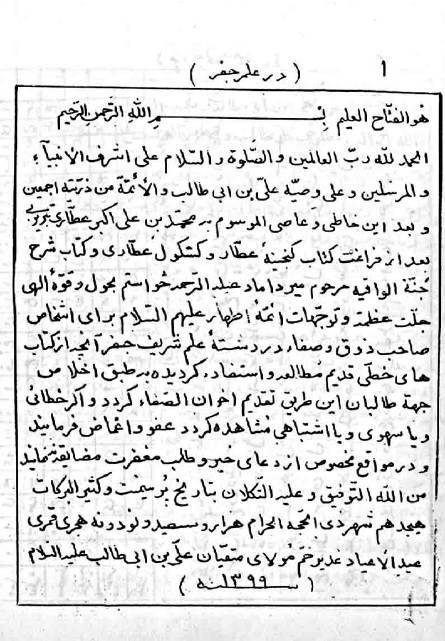 ( در علم جفر )
1
هو الفتاح العليم بسم الله الرحمن الرحيم
الحمد لله رب العالمين والصلوة والسلام على اشرف الانبيآء
والمرسلين وعلى وصيه علىّ بن ابى طالب والائمة من ذريته اجمعين
و بعد اين خاطى وعاصى الموسوم به محمد بن على اكبر عطارى
بعد از فراغت كتاب گنجينهٔ عطار و كشكول عطارى و كتاب شرح
جُنّة الواقيه مرحوم ميرداماد عبد الرحمه خواستم بحول وقوّهٔ الهى
جلّت عظمته وتوجّهات ائمّهٔ اطهار عليهم السّلام براى اشخاص
صاحب ذوق و صفاء در رشتهٔ علم شريف جفر آنچه از كتاب
هاى خطّى قديم مطالعه و استفاده گرديده به طبق اخلاص
جهة طالبان اين طريق تقديم اخوان الصّفاء گردد و اگر خطائى
و يا سهوى و يا اشتباهى مشاهده گردد عفو و اغماض فرمايند
و در مواقع مخصوص از دعاى خير و طلب مغفرت مضايقه ننمايند
من الله التوفيق و عليه التكلان بتاريخ يوم و كثير البركات
هيجدهم شهر ذى الحجة الحرام هزار و سيصد و نود و نه هجرى قمرى
عيد الاعياد غدير خم مولاى متقيان علىّ بن ابى طالب عليه السلام
( ١٣٩٩ سنه )